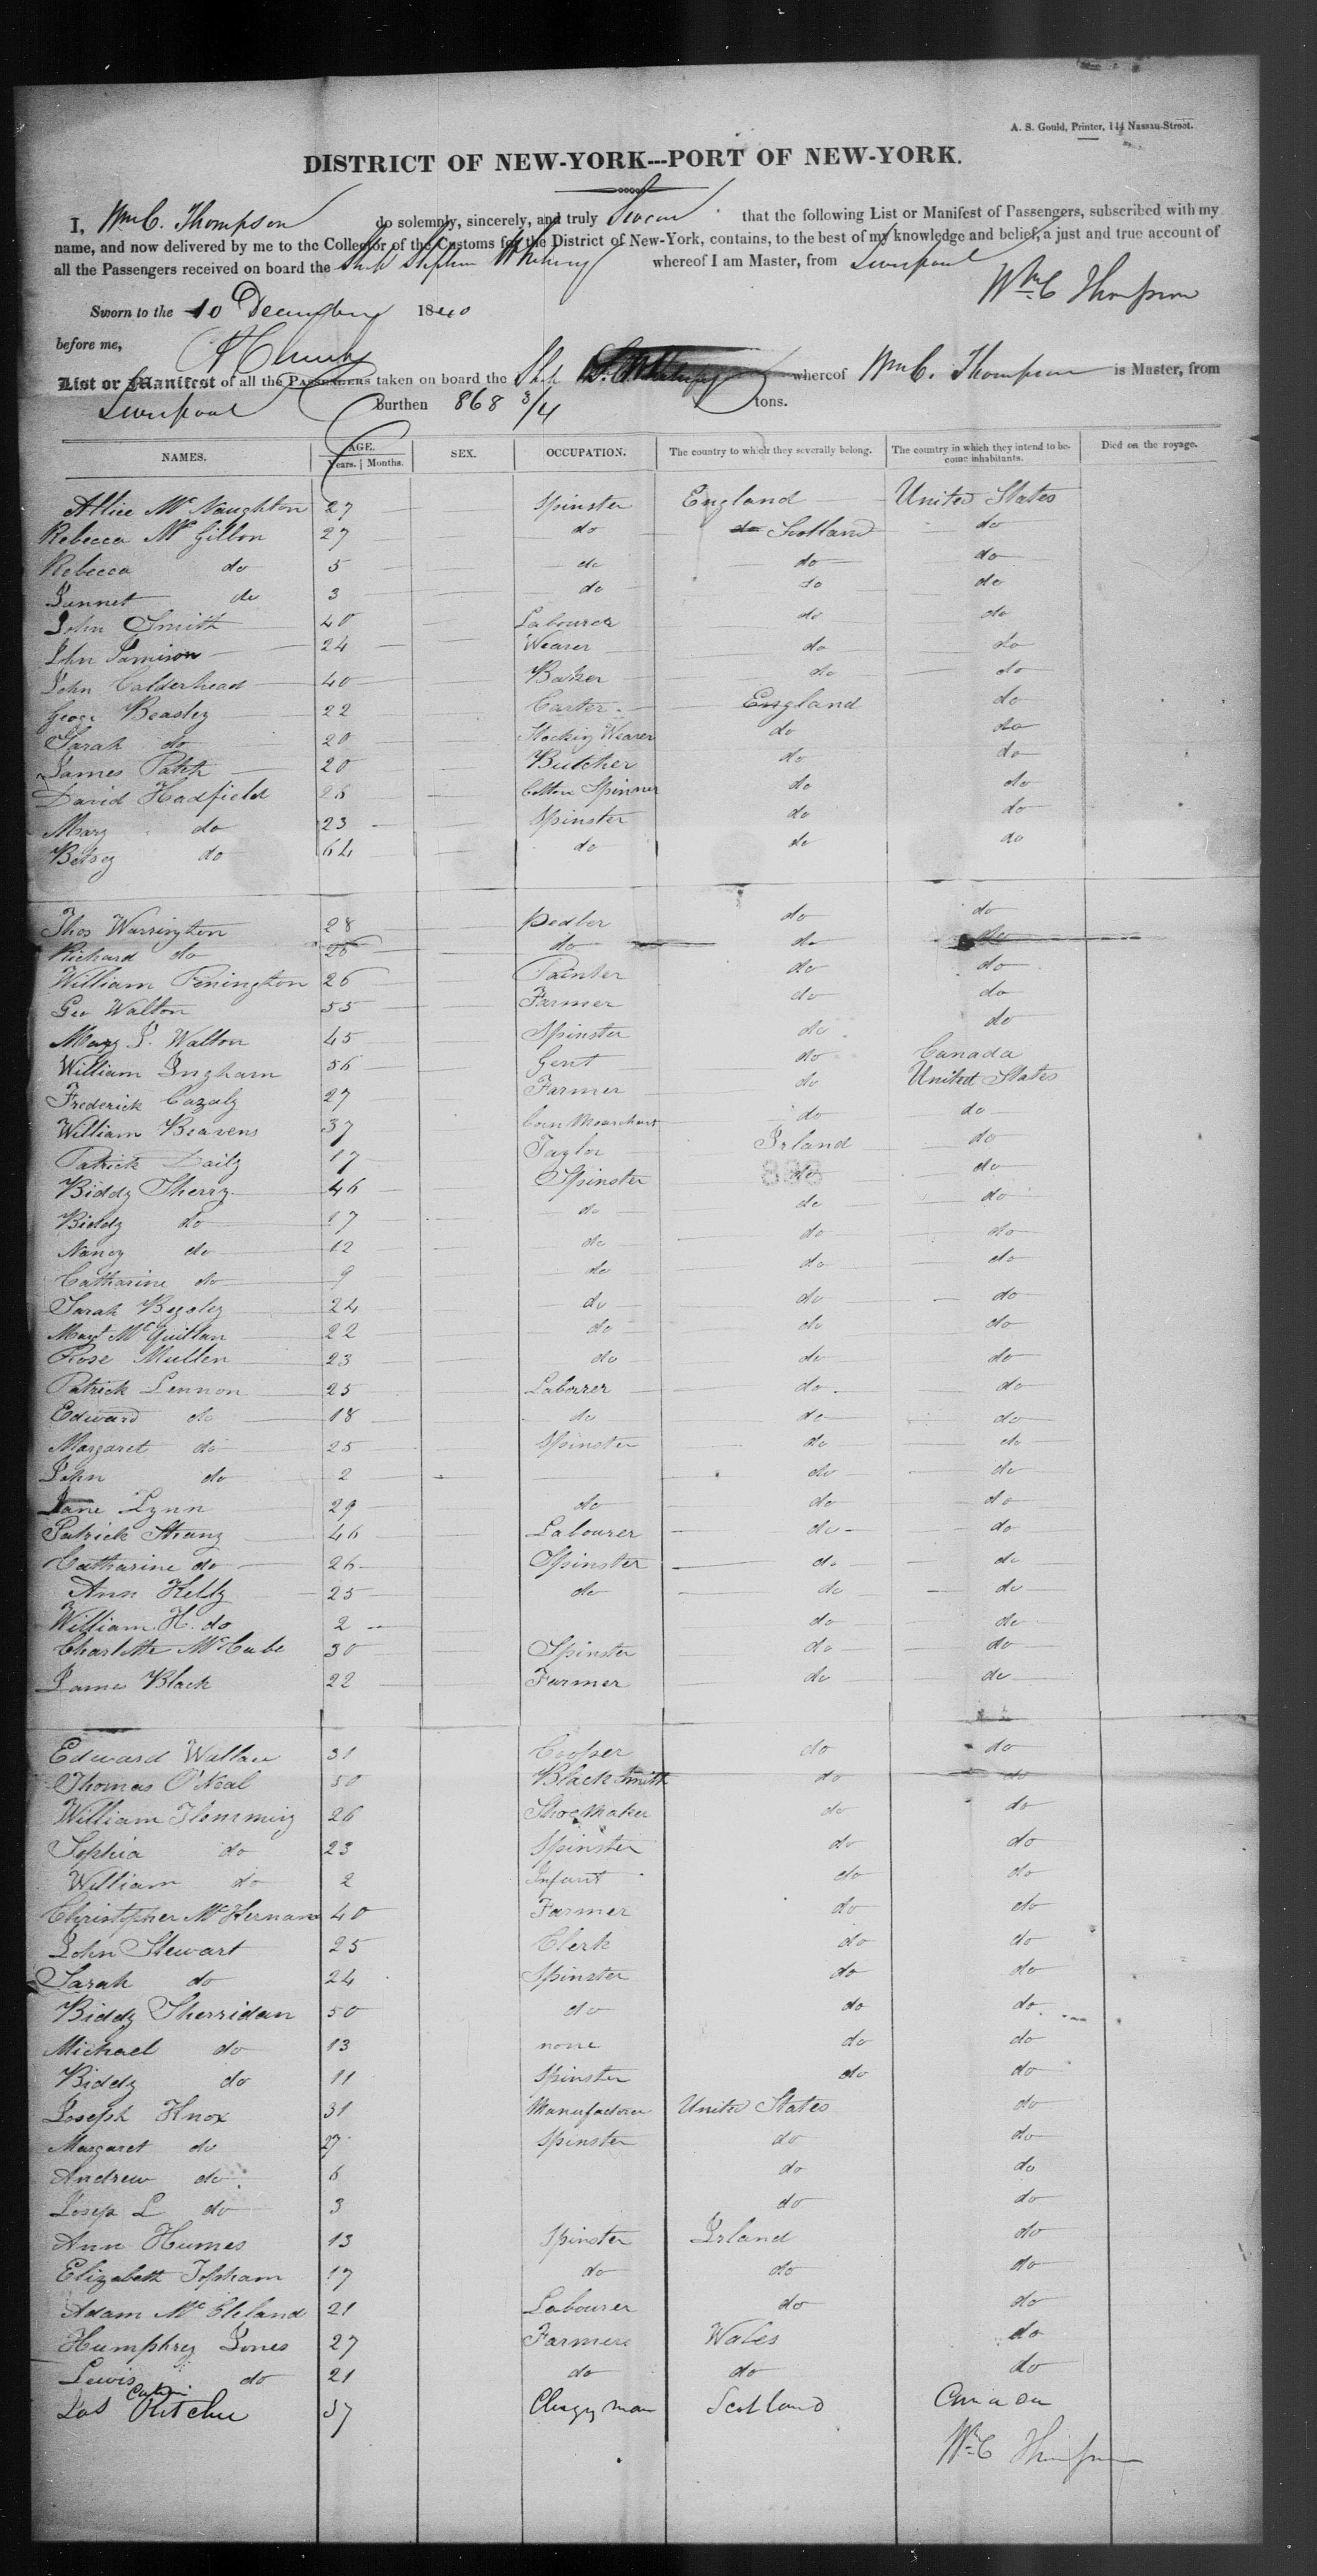 A. S. Gould, Printer, 144 Nassau-Street.
DISTRICT OF NEW-YORK---PORT OF NEW-YORK.
I, Wm C. Thompson do solemnly, sincerely, and truly Swear that the following List or Manifest of Passengers, subscribed with my
name, and now delivered by me to the Collector of the Customs for the District of New-York, contains, to the best of my knowledge and belief, a just and true account of
all the Passengers received on board the Ship Stephen Whitney whereof I am Master, from Liverpool
Wm C Thompson
Sworn to the 10 December 1840
before me,
List or Manifest of all the PASSENGERS taken on board the Ship S. Whitney whereof Wm C. Thompson is Master, from
Liverpool burthen 868 3/4 tons.
NAMES. AGE. Years. | Months. SEX. OCCUPATION. The country to which they severally belong. The country in which they intend to become inhabitants. Died on the voyage.
Allice Mc Naughton 27 Spinster England United States
Rebecca Mc Gibbon 27 do do Scotland do
Rebecca do 5 do do do
Jannet do 3 do do do
John Smith 40 Labourer do do
John Jamison 24 Weaver do do
John Calderhead 40 Baker do do
George Beasley 22 Carter England do
Sarah do 20 Stocking Weaver do do
James Patch 20 Butcher do do
David Hadfield 26 Cotton Spinner do do
Mary do 23 Spinster do do
Betsey do 64 do do do
Thos Warrington 28 Pedler do do
Richard do 26 do do do
William Penington 26 Painter do do
Geo Walton 55 Farmer do do
Mary J. Walton 45 Spinster do do
William Ingham 56 Gent do Canada
Frederick Cazaly 27 Farmer do United States
William Beavens 37 Corn Mearchant do do
Patrick Daily 17 Taylor Irland do
Biddy Sherry 46 Spinster do do
Biddy do 17 do do do
Nancy do 12 do do do
Catharine do 9 do do do
Sarah Begley 24 do do do
Magt McQuillan 22 do do do
Rose Mullen 23 do do do
Patrick Lennon 25 Laborer do do
Edward do 18 do do do
Margaret do 25 Spinster do do
John do 2 do do
Jane Lynn 29 do do do
Patrick Shang 46 Labourer do do
Catharine do 26 Spinster do do
Ann Kelly 25 do do do
William H. do 2 do do
Charlotte McCabe 30 Spinster do do
James Black 22 Farmer do do
Edward Wallace 31 Cooper do do
Thomas O'Neal 50 Black Smith do do
William Flemming 26 Shoe Maker do do
Sophia do 23 Spinster do do
William do 2 Infant do do
Christopher McKernan 40 Farmer do do
John Stewart 25 Clerk do do
Sarah do 24 Spinster do do
Biddy Sherridan 50 do do do
Michael do 13 none do do
Biddy do 11 Spinster do do
Joseph Knox 31 Manufacturer United States do
Margaret do 27 Spinster do do
Andrew do 6 do do
Josep L do 3 do do
Ann Humes 13 Spinster Irland do
Elizabeth Topham 17 do do do
Adam Mc Cleland 21 Labourer do do
Humphrey Jones 27 Farmer Wales do
Lewis do 21 do do do
Jas Ritchie 37 Clergyman Scotland Canada
Wm C Thompson